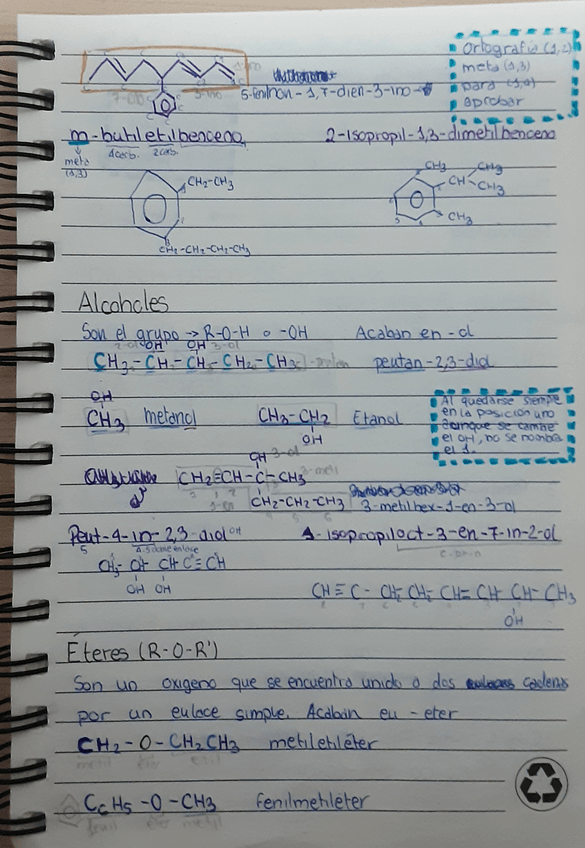 Ortografía (1,2)
meta (1,3)
para (1,4)
aprobar
5-fenilnon-1,7-dien-3-ino
m-butiletilbenceno
4carb. 2carb.
meta
(1,3)
2-isopropil-1,3-dimetilbenceno
CH2-CH3
CH2-CH2-CH2-CH3
CH3
CH
CH3
CH3
CH3
Alcoholes
Son el grupo → R-O-H o -OH Acaban en -ol
2-ol OH OH 3-ol
CH3-CH-CH-CH2-CH3 peutan-2,3-diol
OH
CH3 metanol CH3-CH2 Etanol
OH
Al quedarse siempre
en la posición uno
aunque se cambie
el OH, no se nombra
el 1.
OH 3-ol
CH2=CH-C-CH3 3-metil
CH2-CH2-CH3
3-metilhex-1-en-3-ol
Peut-4-in-2,3-diol
CH3-CH-CH-C≡CH
OH OH
1-isopropiloct-3-en-7-in-2-ol
CH≡C-CH2-CH2-CH=CH-CH-CH3
OH
Éteres (R-O-R')
Son un oxígeno que se encuentra unido a dos cadenas
por un eulace simple. Acaban eu -eter
CH2-O-CH2CH3 metiletiléter
metil éter etil
C6H5-O-CH3 fenilmetiléter
fenil éter metil